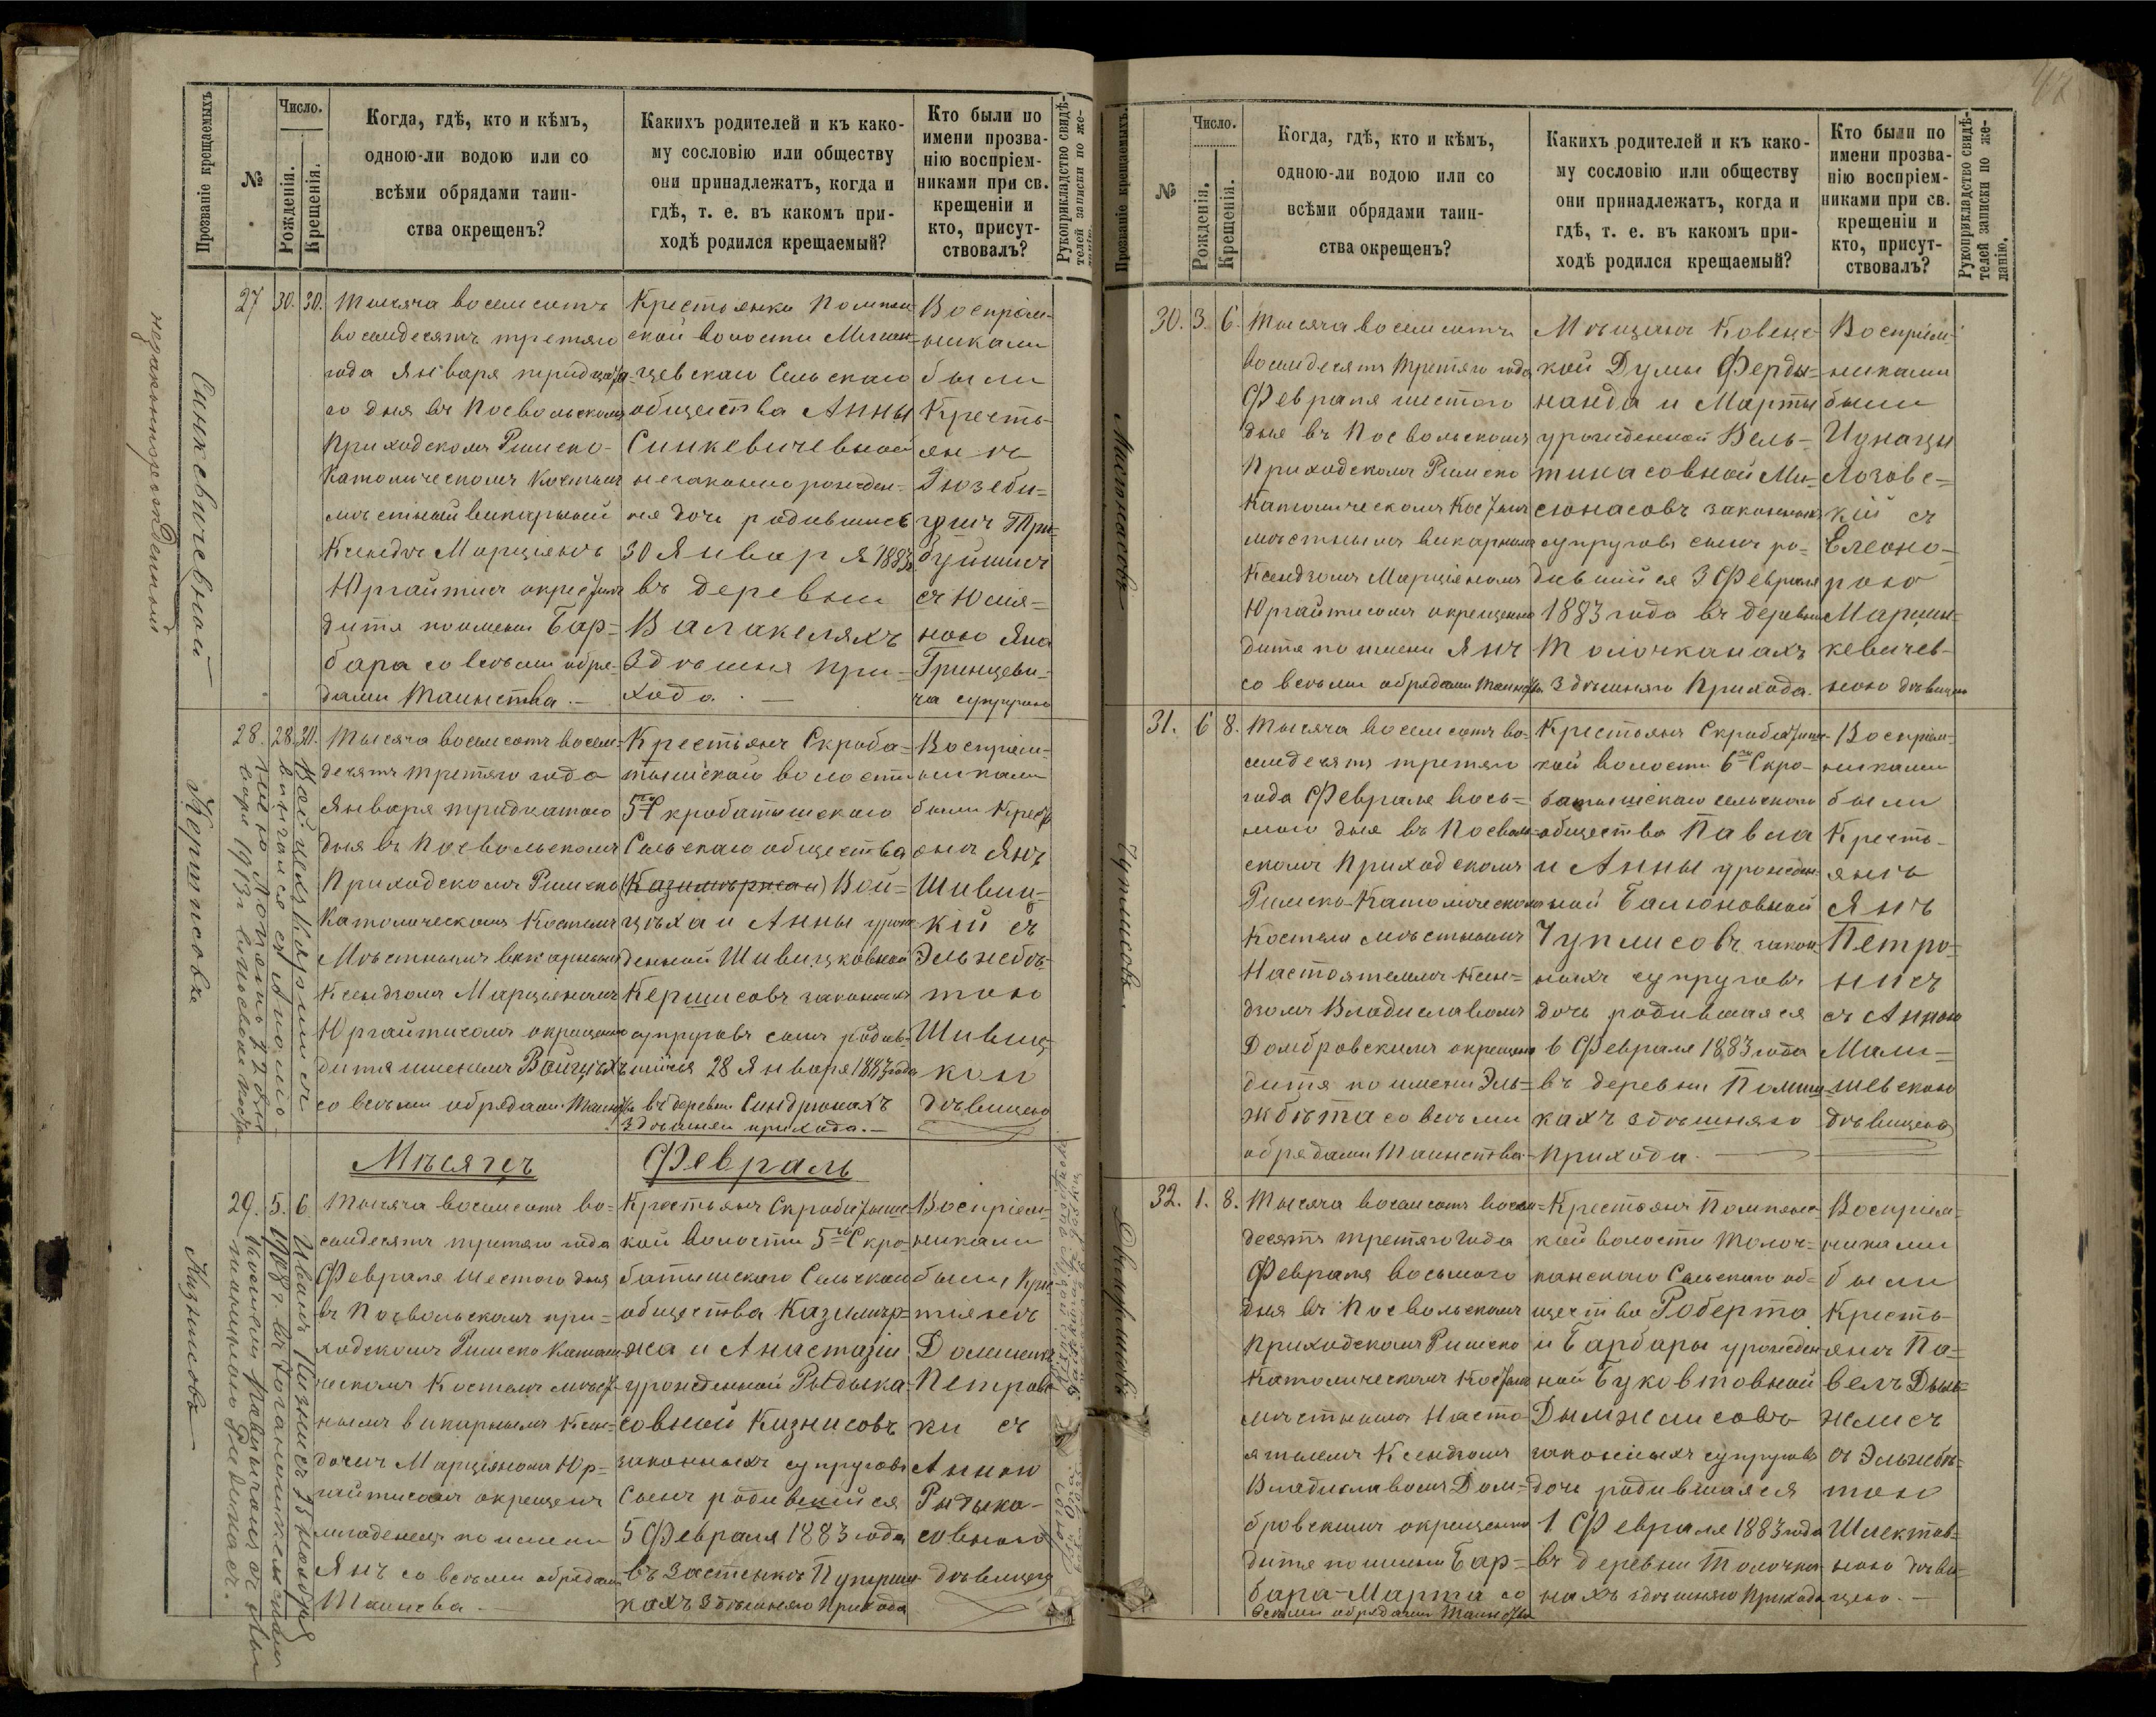 Прозваніе крещаемыхъ
№
Число.
Рожденія.
Крещенія.
Когда, гдѣ, кто и кѣмъ,
одною-ли водою или со
всѣми обрядами таин-
ства окрещенъ?
Какихъ родителей и къ како-
му сословію или обществу
они принадлежатъ, когда и
гдѣ, т. е. въ какомъ при-
ходѣ родился крещаемый?
Кто были по
имени прозва-
нію воспріем-
никами при св.
крещеніи и
кто, присут-
ствовалъ?
Рукоприкладство свидѣ-
телей записки по же-
ланію.
незаконнорожденной
Синкевичевной
27
30.
30.
Тысяча восемсотъ
восемдесятъ третяго
года Января тридцата-
го дня въ Посвольскомъ
Приходскомъ Римско-
Католическомъ Костелѣ
мѣстный викарный
Ксендзъ Марціянъ
Юргайтисъ окрест.
дитя по имени Бар-
бара со всѣми обря-
дами Таинства.—
Крестьянки Помпян-
ской волости
Сельскаго
общества Анны
Синкевичевной
незаконно рожден-
ная дочь родившаяся
30 Января 1883г.
въ деревни
Валакеляхъ
здѣшня при-
хода. —
Воспріем-
никами
были
Кресть-
янъ
съ Юлія-
ною Яна
Гринцеви-
ча супругою
Кершисовъ
28.
28.
30.
Тысяча восемсотъ восем-
десятъ третяго года
Января тридцатаго
дня въ Посвольскомъ
Приходскомъ Римско
Католическомъ Костелѣ
Мѣстнымъ викарнымъ
Ксендзомъ Марціяномъ
Юргайтисомъ окрещено
дитя именемъ Войцѣхъ
со всѣми обрядами Таинства
Крестьянъ Скроба-
тышской волости
5го Скробатышскаго
Сельскаго общества
Вой-
цѣха и Анны урож-
денной Шивицковной
Кершисовъ законныхъ
супруговъ сынъ родив-
шійся 28 Января 1883 года
въ деревни Синдрюнахъ
здѣшнея прихода.—
Воспріем-
никами
были Кресть
янъ Янъ
Шивиц-
кій съ
Эльжебѣ-
тою
Шивиц-
кою
дѣвицею
Войцехъ Кершисъ
1913г.
Мѣсяцъ Февраль
Кизнисовъ
29.
5.
6
Тысяча восемсотъ во-
семдесятъ третяго года
Февраля Шестого дня
въ Посвольскомъ при-
ходскомъ Римско Католи-
ческомъ Костелѣ мѣст-
нымъ викарнымъ Ксен-
дзомъ Марціяномъ Юр-
гайтисомъ окрещенъ
младенецъ по имени
Янъ со всѣми обрядами
Таинсва. —
Крестьянъ Скробатышс-
кой волости 5го Скро-
батышскаго Сельскаго
общества Казимир-
жа и Анастазіи
урожденной Рыдыка-
совной Кизнисовъ
законныхъ супруговъ
Сынъ родившійся
5 Февраля 1883 года
въ Застенкѣ
кахъ здѣшняго Прихода
Воспріем-
никами
были Крес-
тьянъ
Доминикъ
Петровс
ки съ
Анною
Рыдыка-
совною
дѣвицею
Иванъ Кизнисъ
1908 г.
Прозваніе крещаемыхъ.
№
Число.
Рожденія.
Крещенія.
Когда, гдѣ, кто и кѣмъ,
одною-ли водою или со
всѣми обрядами таин-
ства окрещенъ?
Какихъ родителей и къ како-
му сословію или обществу
они принадлежатъ, когда и
гдѣ, т. е. въ какомъ при-
ходѣ родился крещаемый?
Кто были по
имени прозва-
нію воспріем-
никами при св.
крещеніи и
кто, присут-
ствовалъ?
Рукоприкладство свидѣ-
телей записки по же-
ланію.
Мисюнасовъ
30.
3.
6.
Тысяча восемсотъ
восемдесятъ третяго года
Февраля шестого
дня въ Посвольскомъ
Приходскомъ Римско
Католическомъ Костелѣ
мѣстнымъ викарнымъ
Ксендзомъ Марціяномъ
Юргайтисомъ окрещено
дитя по имени Янъ
со всѣми обрядами Таинства
Мѣщанъ Ковенс-
кой Думы Ферды-
нанда и Марты
урожденной Вель-
тикасовной Ми-
сюнасовъ законныхъ
супруговъ сынъ ро-
дившийся 3 Февраля
1883 года въ деревни
Толочканахъ
здѣшняго Прихода.
Воспріем-
никами
были
Игнацы
Лозовс-
кій съ
Елеоно-
рою
Марцин-
кевичев-
ною дѣвицею
Чуплисовъ
31.
6
8.
Тысяча восемсотъ во-
семдесятъ третяго
года Февраля вось-
мого дня въ Посволь-
скомъ Приходскомъ
Римско-Католическомъ
Костелѣ мѣстнымъ
Настоятелемъ Ксен-
дзомъ Владиславомъ
Домбровскимъ окрещено
дитя по имени Эль-
жбѣта со всѣми
обрядами Таинства
Крестьянъ Скробатышс-
кой волости 6го Скро-
батышскаго сельскаго
общества Павла
и Анны урожден-
ной Балюновной
Чуплисовъ закон-
ныхъ супруговъ
дочь родившаяся
6 Февраля 1883 года
въ деревни
кахъ здѣшняго
Прихода. —
Воспріем-
никами
были
Кресть-
янъ
Янъ
Петро-
нисъ
съ Анною
Мали-
шевскою
дѣвицею
Дымжлисовъ
32.
1.
8.
Тысяча восемсотъ восем-
десятъ третяго года
Февраля восьмого
дня въ Посвольскомъ
Приходскомъ Римско
Католическомъ Костелѣ
мѣстнымъ Насто-
ятелемъ Ксендзомъ
Владиславомъ Дом-
бровскимъ окрещенно
дитя по имени Бар-
бара-Марта со
всѣми обрядами Таинства
Крестьянъ Помпянс-
кой волости Толоч-
канскаго Сельскаго об-
щества Роберта
и Барбары урожден-
ной Буковтовной
Дымжлисовъ
законныхъ супруговъ
дочь родившаяся
1 Февраля 1883 года
въ деревни Толочка-
нахъ здѣшняго Прихода
Воспріем-
никами
были
Кресть-
янъ Па-
велъ Дым-
жлисъ
съ Эльжбѣ-
тою
Шлектов-
ною дѣви-
цею. —